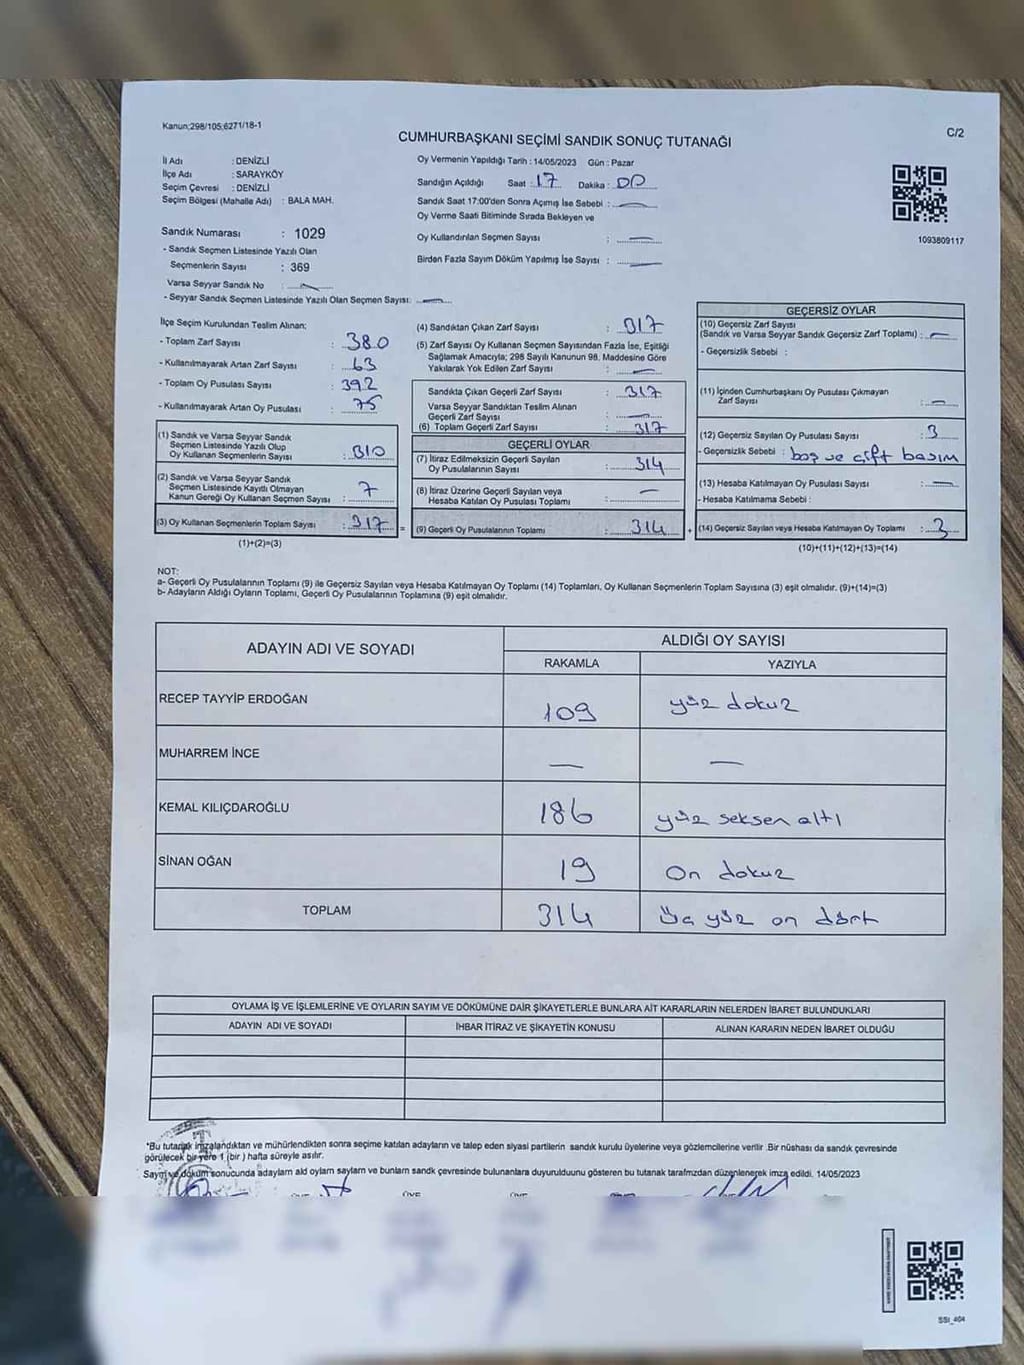 Kanun;298/105;6271/18-1
C/2
CUMHURBAŞKANI SEÇİMİ SANDIK SONUÇ TUTANAĞI
İl Adı : DENİZLİ
İlçe Adı : SARAYKÖY
Seçim Çevresi : DENİZLİ
Seçim Bölgesi (Mahalle Adı) : BALA MAH.
Sandık Numarası : 1029
- Sandık Seçmen Listesinde Yazılı Olan
Seçmenlerin Sayısı : 369
Varsa Seyyar Sandık No
- Seyyar Sandık Seçmen Listesinde Yazılı Olan Seçmen Sayısı: —
Oy Vermenin Yapıldığı Tarih : 14/05/2023 Gün : Pazar
Sandığın Açıldığı Saat : 17 Dakika : 00
Sandık Saat 17:00'den Sonra Açımış İse Sebebi : —
Oy Verme Saati Bitiminde Sırada Bekleyen ve
Oy Kullandırılan Seçmen Sayısı : —
Birden Fazla Sayım Döküm Yapılmış İse Sayısı : —
1093809117
İlçe Seçim Kurulundan Teslim Alınan;
- Toplam Zarf Sayısı : 380
- Kullanılmayarak Artan Zarf Sayısı : 63
- Toplam Oy Pusulası Sayısı : 392
- Kullanılmayarak Artan Oy Pusulası : 75
(1) Sandık ve Varsa Seyyar Sandık
Seçmen Listesinde Yazılı Olup
Oy Kullanan Seçmenlerin Sayısı : 310
(2) Sandık ve Varsa Seyyar Sandık
Seçmen Listesinde Kayıtlı Olmayan
Kanun Gereği Oy Kullanan Seçmen Sayısı : 7
(3) Oy Kullanan Seçmenlerin Toplam Sayısı : 317 =
(1)+(2)=(3)
(4) Sandıktan Çıkan Zarf Sayısı : 317
(5) Zarf Sayısı Oy Kullanan Seçmen Sayısından Fazla İse, Eşitliği
Sağlamak Amacıyla; 298 Sayılı Kanunun 98. Maddesine Göre
Yakılarak Yok Edilen Zarf Sayısı : —
Sandıkta Çıkan Geçerli Zarf Sayısı : 317
Varsa Seyyar Sandıktan Teslim Alınan
Geçerli Zarf Sayısı : —
(6) Toplam Geçerli Zarf Sayısı : 317
GEÇERLİ OYLAR
(7) İtiraz Edilmeksizin Geçerli Sayılan
Oy Pusulalarının Sayısı : 314
(8) İtiraz Üzerine Geçerli Sayılan veya
Hesaba Katılan Oy Pusulası Toplamı : —
(9) Geçerli Oy Pusulalarının Toplamı : 314 +
GEÇERSİZ OYLAR
(10) Geçersiz Zarf Sayısı
(Sandık ve Varsa Seyyar Sandık Geçersiz Zarf Toplamı) : —
- Geçersizlik Sebebi :
(11) İçinden Cumhurbaşkanı Oy Pusulası Çıkmayan
Zarf Sayısı : —
(12) Geçersiz Sayılan Oy Pusulası Sayısı : 3
- Geçersizlik Sebebi : boş ve çift basım
(13) Hesaba Katılmayan Oy Pusulası Sayısı : —
- Hesaba Katılmama Sebebi :
(14) Geçersiz Sayılan veya Hesaba Katılmayan Oy Toplamı : 3
(10)+(11)+(12)+(13)=(14)
NOT:
a- Geçerli Oy Pusulalarının Toplamı (9) ile Geçersiz Sayılan veya Hesaba Katılmayan Oy Toplamı (14) Toplamları, Oy Kullanan Seçmenlerin Toplam Sayısına (3) eşit olmalıdır. (9)+(14)=(3)
b- Adayların Aldığı Oyların Toplamı, Geçerli Oy Pusulalarının Toplamına (9) eşit olmalıdır.
ADAYIN ADI VE SOYADI
ALDIĞI OY SAYISI
RAKAMLA YAZIYLA
RECEP TAYYİP ERDOĞAN 109 yüz dokuz
MUHARREM İNCE — —
KEMAL KILIÇDAROĞLU 186 yüz seksen altı
SİNAN OĞAN 19 On dokuz
TOPLAM 314 üç yüz on dört
OYLAMA İŞ VE İŞLEMLERİNE VE OYLARIN SAYIM VE DÖKÜMÜNE DAİR ŞİKAYETLERLE BUNLARA AİT KARARLARIN NELERDEN İBARET BULUNDUKLARI
ADAYIN ADI VE SOYADI İHBAR İTİRAZ VE ŞİKAYETİN KONUSU ALINAN KARARIN NEDEN İBARET OLDUĞU
*Bu tutanak imzalandıktan ve mühürlendikten sonra seçime katılan adayların ve talep eden siyasi partilerin sandık kurulu üyelerine veya gözlemcilerine verilir .Bir nüshası da sandık çevresinde
görülecek bir yere 1 (bir ) hafta süreyle asılır.
Sayım ve döküm sonucunda
14/05/2023
SSI_404